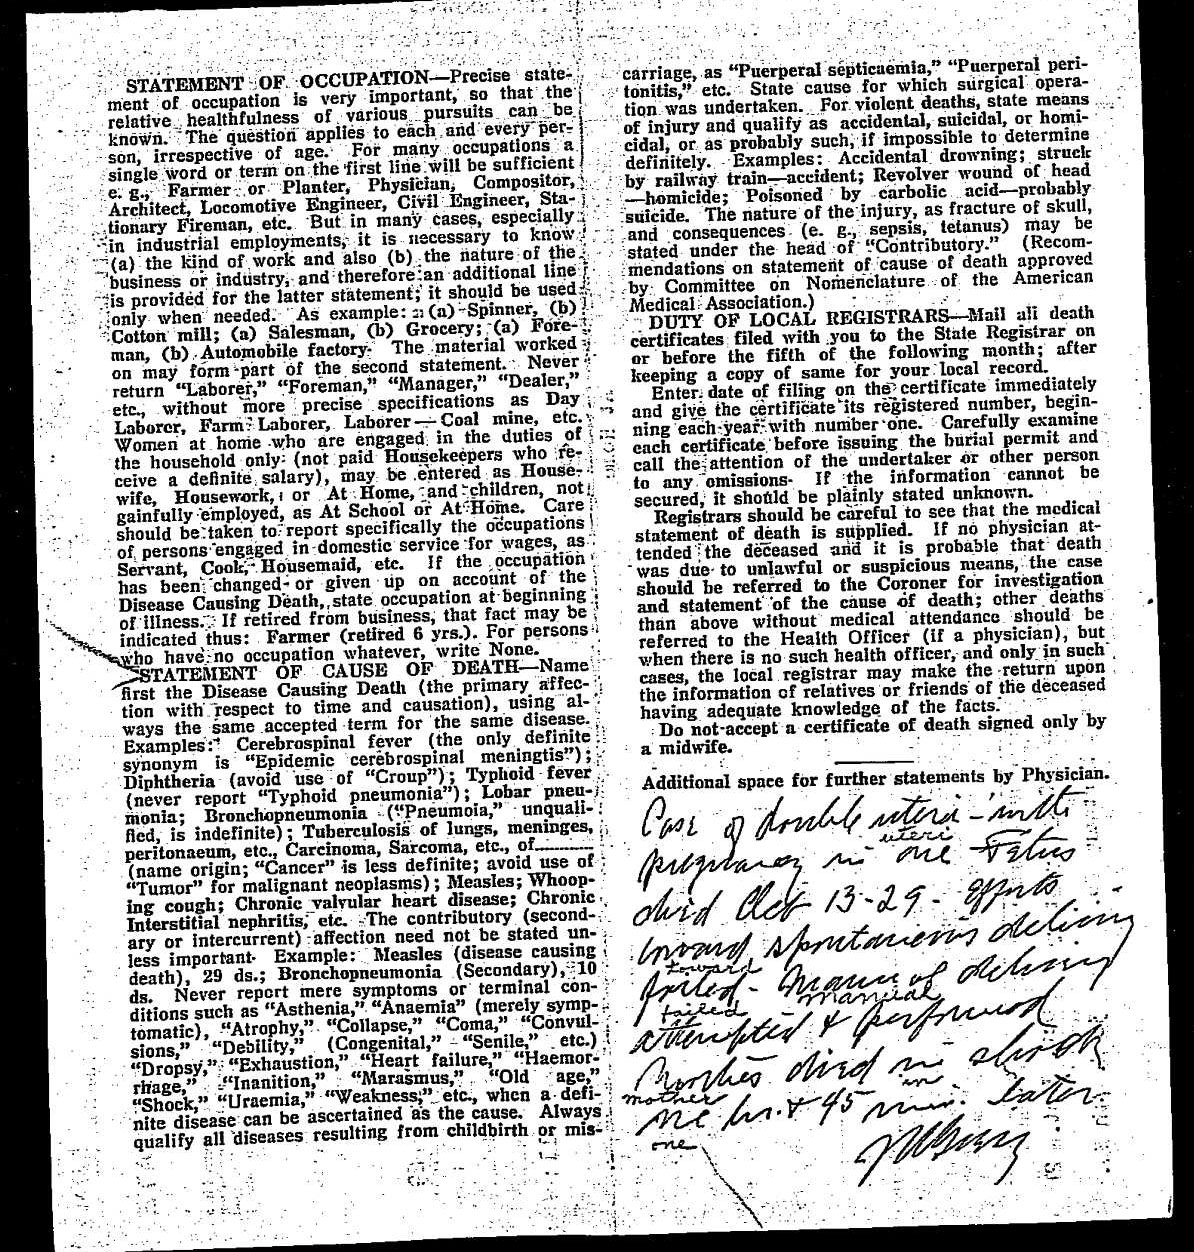 STATEMENT OF OCCUPATION—Precise state-
ment of occupation is very important, so that the
relative healthfulness of various pursuits can be
known. The question applies to each and every per-
son, irrespective of age. For many occupations a
single word or term on the first line will be sufficient
e. g., Farmer or Planter, Physician, Compositor,
Architect, Locomotive Engineer, Civil Engineer, Sta-
tionary Fireman, etc. But in many cases, especially
in industrial employments, it is necessary to know
(a) the kind of work and also (b) the nature of the
business or industry, and therefore an additional line
is provided for the latter statement; it should be used
only when needed. As example: (a) Spinner, (b)
Cotton mill; (a) Salesman, (b) Grocery; (a) Fore-
man, (b) Automobile factory. The material worked
on may form part of the second statement. Never
return “Laborer,” “Foreman,” “Manager,” “Dealer,”
etc., without more precise specifications as Day
Laborer, Farm Laborer, Laborer—Coal mine, etc.
Women at home who are engaged in the duties of
the household only (not paid Housekeepers who re-
ceive a definite salary), may be entered as House-
wife, Housework, or At Home, and children, not
gainfully employed, as At School or At Home. Care
should be taken to report specifically the occupations
of persons engaged in domestic service for wages, as
Servant, Cook, Housemaid, etc. If the occupation
has been changed or given up on account of the
Disease Causing Death, state occupation at beginning
of illness. If retired from business, that fact may be
indicated thus: Farmer (retired 6 yrs.). For persons
who have no occupation whatever, write None.
STATEMENT OF CAUSE OF DEATH—Name
first the Disease Causing Death (the primary affec-
tion with respect to time and causation), using al-
ways the same accepted term for the same disease.
Examples: Cerebrospinal fever (the only definite
synonym is “Epidemic cerebrospinal meningtis”);
Diphtheria (avoid use of “Croup”); Typhoid fever
(never report “Typhoid pneumonia”); Lobar pneu-
monia; Bronchopneumonia (“Pneumoia,” unquali-
fied, is indefinite); Tuberculosis of lungs, meninges,
peritonaeum, etc., Carcinoma, Sarcoma, etc., of
(name origin; “Cancer” is less definite; avoid use of
“Tumor” for malignant neoplasms); Measles; Whoop-
ing cough; Chronic valvular heart disease; Chronic
Interstitial nephritis, etc. The contributory (second-
ary or intercurrent) affection need not be stated un-
less important. Example: Measles (disease causing
death), 29 ds.; Bronchopneumonia (Secondary), 10
ds. Never report mere symptoms or terminal con-
ditions such as “Asthenia,” “Anaemia” (merely symp-
tomatic), “Atrophy,” “Collapse,” “Coma,” “Convul-
sions,” “Debility,” (Congenital,” “Senile,” etc.)
“Dropsy,” “Exhaustion,” “Heart failure,” “Haemor-
rhage,” “Inanition,” “Marasmus,” “Old age,”
“Shock,” “Uraemia,” “Weakness,” etc., when a defi-
nite disease can be ascertained as the cause. Always
qualify all diseases resulting from childbirth or mis-
carriage, as “Puerperal septicaemia,” “Puerperal peri-
tonitis,” etc. State cause for which surgical opera-
tion was undertaken. For violent deaths, state means
of injury and qualify as accidental, suicidal, or homi-
cidal, or as probably such, if impossible to determine
definitely. Examples: Accidental drowning; struck
by railway train—accident; Revolver wound of head
—homicide; Poisoned by carbolic acid—probably
suicide. The nature of the injury, as fracture of skull,
and consequences (e. g., sepsis, tetanus) may be
stated under the head of “Contributory.” (Recom-
mendations on statement of cause of death approved
by Committee on Nomenclature of the American
Medical Association.)
DUTY OF LOCAL REGISTRARS—Mail all death
certificates filed with you to the State Registrar on
or before the fifth of the following month; after
keeping a copy of same for your local record.
Enter date of filing on the certificate immediately
and give the certificate its registered number, begin-
ning each year with number one. Carefully examine
each certificate before issuing the burial permit and
call the attention of the undertaker or other person
to any omissions. If the information cannot be
secured, it should be plainly stated unknown.
Registrars should be careful to see that the medical
statement of death is supplied. If no physician at-
tended the deceased and it is probable that death
was due to unlawful or suspicious means, the case
should be referred to the Coroner for investigation
and statement of the cause of death; other deaths
than above without medical attendance should be
referred to the Health Officer (if a physician), but
when there is no such health officer, and only in such
cases, the local registrar may make the return upon
the information of relatives or friends of the deceased
having adequate knowledge of the facts.
Do not accept a certificate of death signed only by
a midwife.
Additional space for further statements by Physician.
Case of double uteri - with
uteri
pregnancy in one Fetus
died Oct 13-29. efforts
toward spontaneous delivery
toward
failed - Manual delivery
failed manual
attempted & performed
Mother died in shock
mother in
one hr. & 45 min. later
one